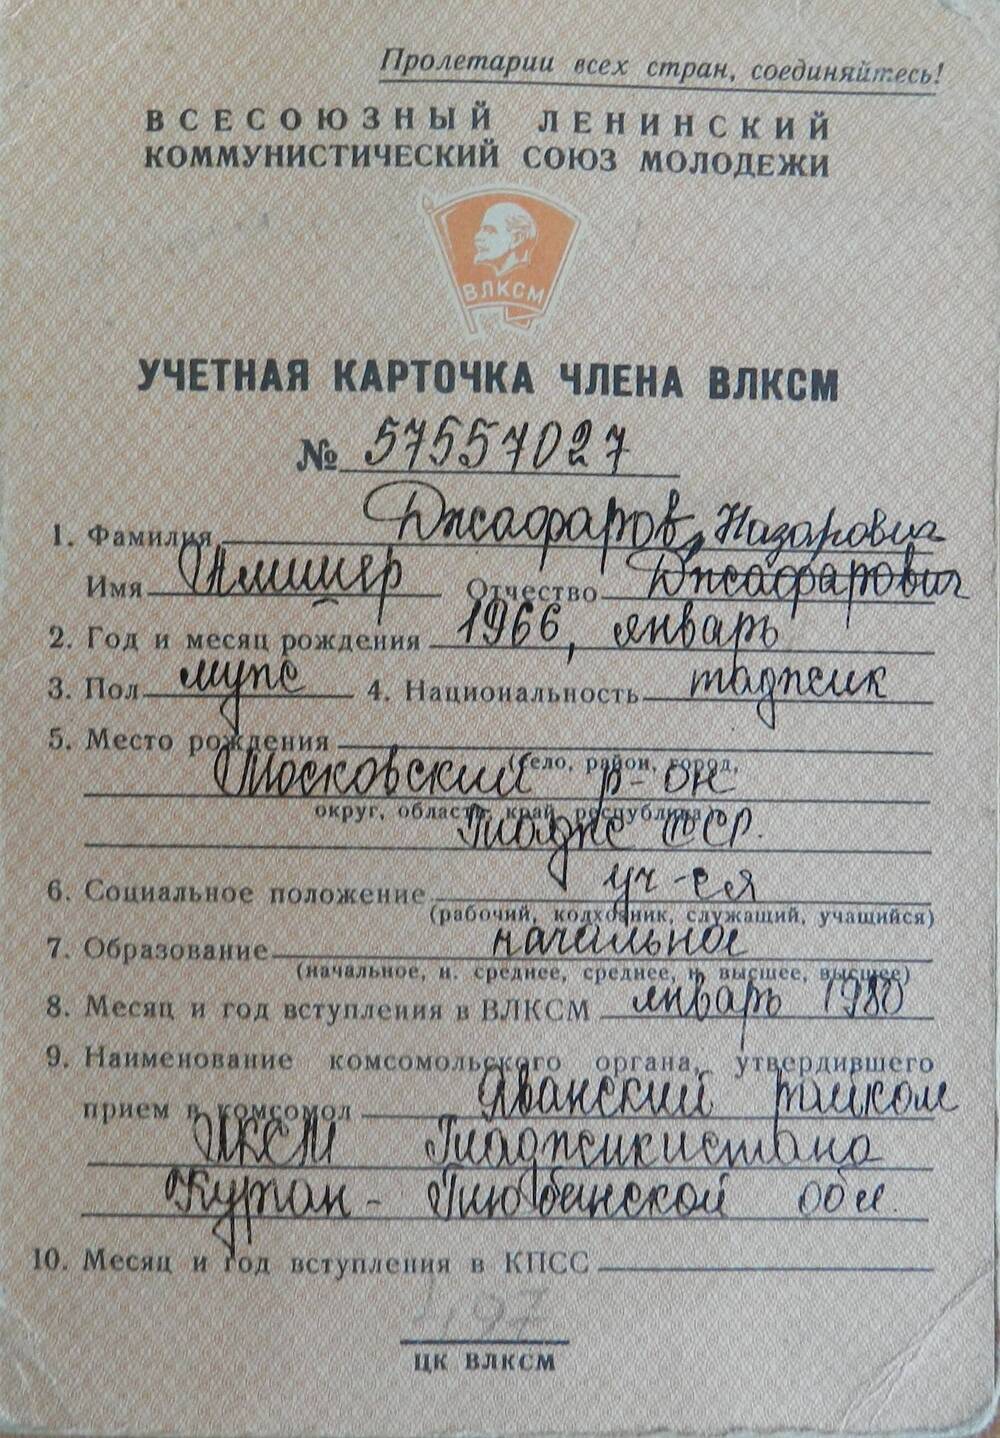 Пролетарии всех стран, соединяйтесь!
ВСЕСОЮЗНЫЙ ЛЕНИНСКИЙ
КОММУНИСТИЧЕСКИЙ СОЮЗ МОЛОДЕЖИ
ВЛКСМ
УЧЕТНАЯ КАРТОЧКА ЧЛЕНА ВЛКСМ
№ 57557027
1. Фамилия Джафаров, Назарович
Имя Алишер Отчество Джафарович
2. Год и месяц рождения 1966, январь
3. Пол муж 4. Национальность таджик
5. Место рождения
(село, район, город,
Московский р-он
округ, область, край, республика)
Тадж ССР.
6. Социальное положение уч-ся
(рабочий, колхозник, служащий, учащийся)
7. Образование начальное
(начальное, н. среднее, среднее, н. высшее, высшее)
8. Месяц и год вступления в ВЛКСМ январь 1980
9. Наименование комсомольского органа, утвердившего
прием в комсомол Яванский райком
ЛКСМ Таджикистана
Курган-Тюбинской обл.
10. Месяц и год вступления в КПСС
ЦК ВЛКСМ